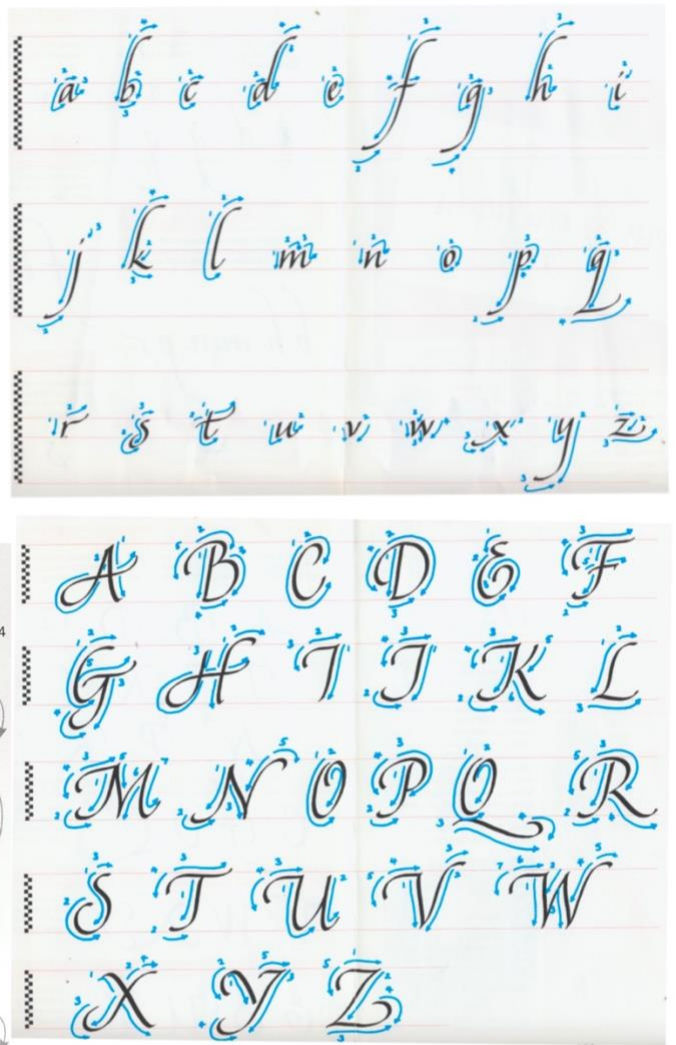 a b c d e f g h i
j k l m n o p q
r s t u v w x y z
A B C D E F
G H I J K L
M N O P Q R
S T U V W
X Y Z